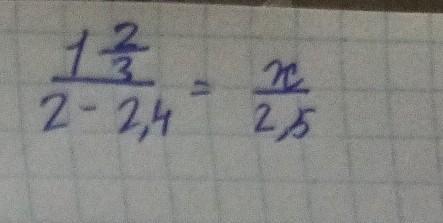 1 2/3 / 2 - 2,4 = x / 2,5